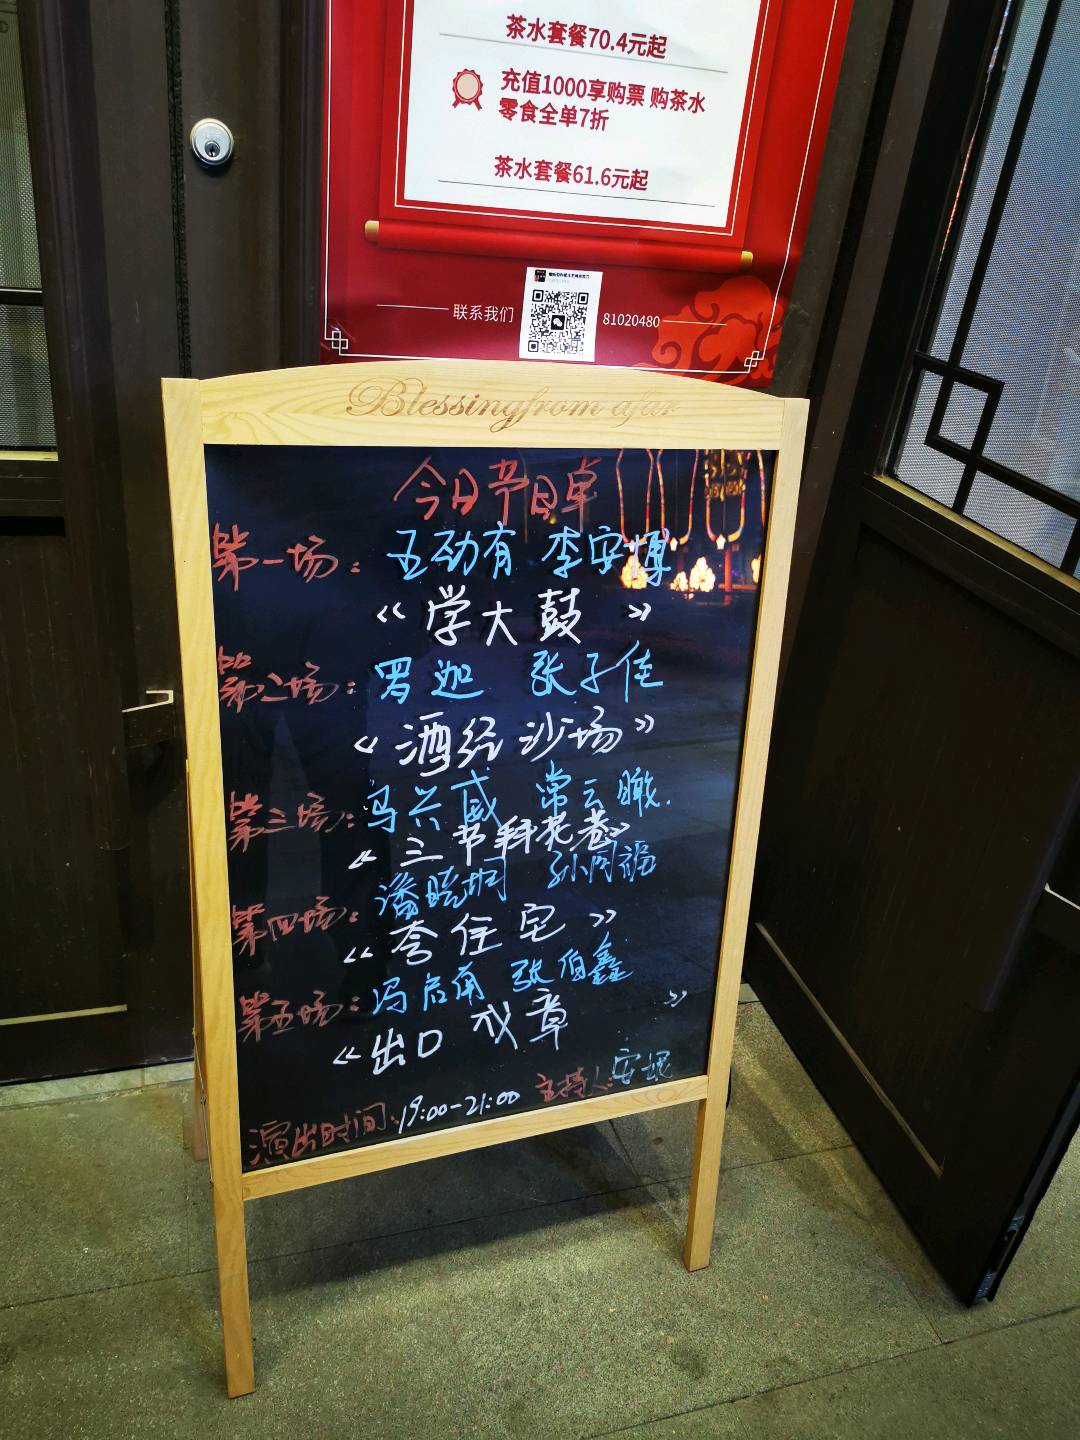 茶水套餐70.4元起
充值1000享购票 购茶水
零食全单7折
茶水套餐61.6元起
联系我们
81020480
Blessingfrom afar
今日节目单
第一场：王动有 李安博
《学大鼓》
第二场：罗迦 张子佳
《酒经沙场》
第三场：冯兴威 常云瞰
《三节拜花巷》
第四场：潘晓桐 孙同福
《夸住宅》
第五场：冯启甫 张伯鑫
《出口成章》
演出时间：19:00-21:00 主持人：安妮